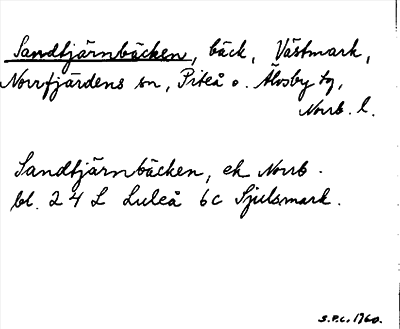 Sandtjärnbäcken, bäck, Västmark,
Norrfjärdens sn, Piteå o. Älvsby tg,
Norrb. l.
Sandtjärnbäcken, ek Norrb.
bl. 24 L Luleå 6c Sjulsmark.
S.P.C. 1960.